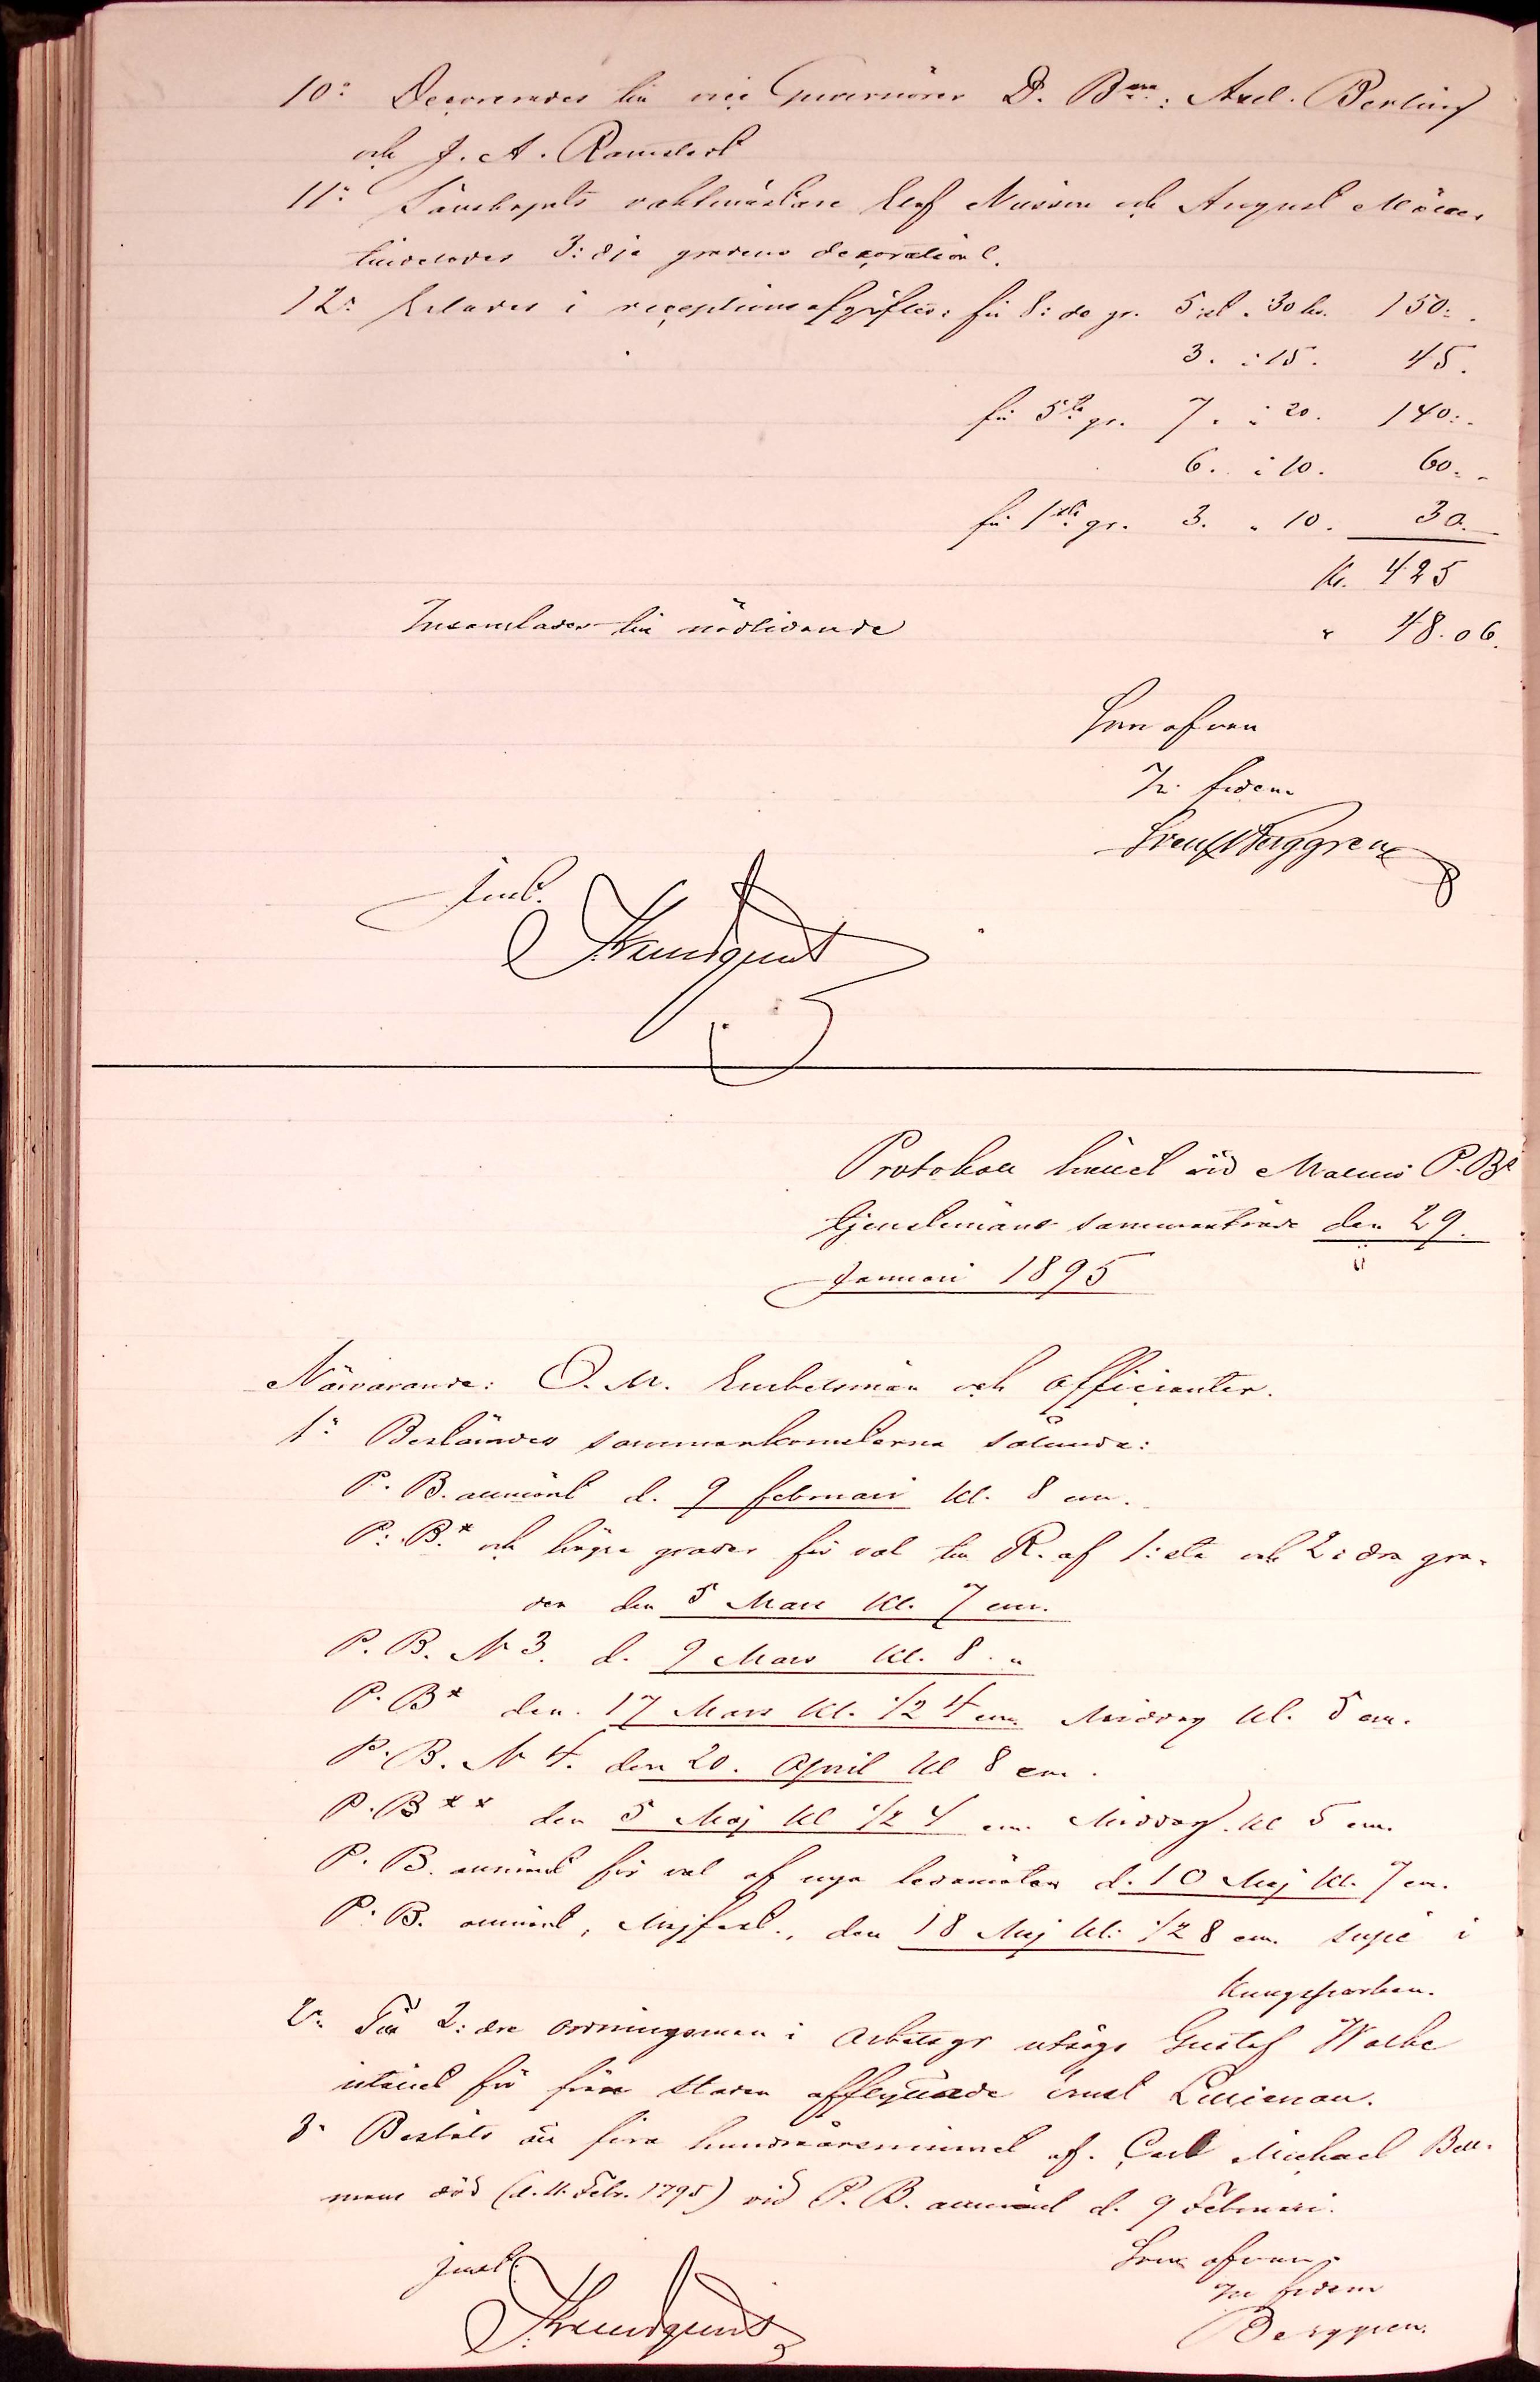 10: Decorerades till vice Guvernörer D. Bne: Axel. Berling
och J. A. Ramstedt
11: Sällskapets vaktmästare Elof Nilsson och August Möller
tilldelades 3:dje gradens dekoration.
12: Erlades i receptionsafgifter: för 8:de gr. 5 st. 30 kr. 150:.
3. : 15. 45.
för 5te gr. 7. : 20. 140:.
6. : 10. 60.
för 1sta gr. 3. " 10. 30.
Kr. 425
Insamlades till nödlidande " 48.06.
Som ofvan
In fidem
Sven Berggren
Just.
Protokoll hållet vid Malmö P.B:s
tjenstemäns sammanträde den 29.
Januari 1895
Närvarande: O.M. Embetsmän och Officianter.
1: Bestämdes sammankomsterna sålunda:
P. B. allmänt d. 9 februari kl. 8 em.
P. B.* och högre grader för val till R. af 1:sta och 2:dra gra-
den den 5 Mars kl. 7 em.
P. B. N 3. d. 9 Mars kl. 8. "
P. B* den. 17 Mars kl. 1/2 4 em. Middag kl. 5 em.
P. B. N 4. den 20. April kl 8 em.
P. B** den 5 Maj kl 1/2 4 em. Middag. kl 5 em.
P. B. allmänt för val af nya ledamöter d. 10 Maj kl. 7 em.
P. B. allmänt, Majfest., den 18 Maj kl: 1/2 8 em. supé i
Kungsparken.
2: Till 2:dre ordningsman i Arbetsgr utsågs Gustaf
istället för från staden afflyttade Ernst
3: Beslöts att fira hundraårsminnet af Carl Michael Bell-
mans död (d. 11. Febr. 1795) vid P. B. allmänt d. 9 Februari.
Som ofvan
Just.
In fidem
Berggren.